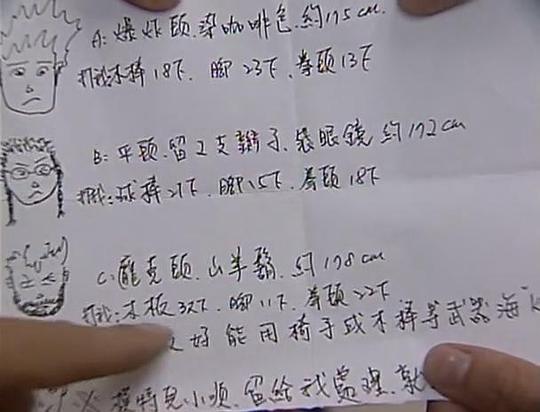 A: 爆炸頭.染咖啡色.約175cm.
打我:木棒18下.腳23下.拳頭13下
B: 平頭.留2支辮子.裝眼鏡 約172cm
打我:球棒21下.腳15下.拳頭18下
C: 龐克頭.山羊鬍.約178cm
打我:木板32下.腳11下.拳頭22下
好能用椅子或木棒等武器海
小順.留給我處理.